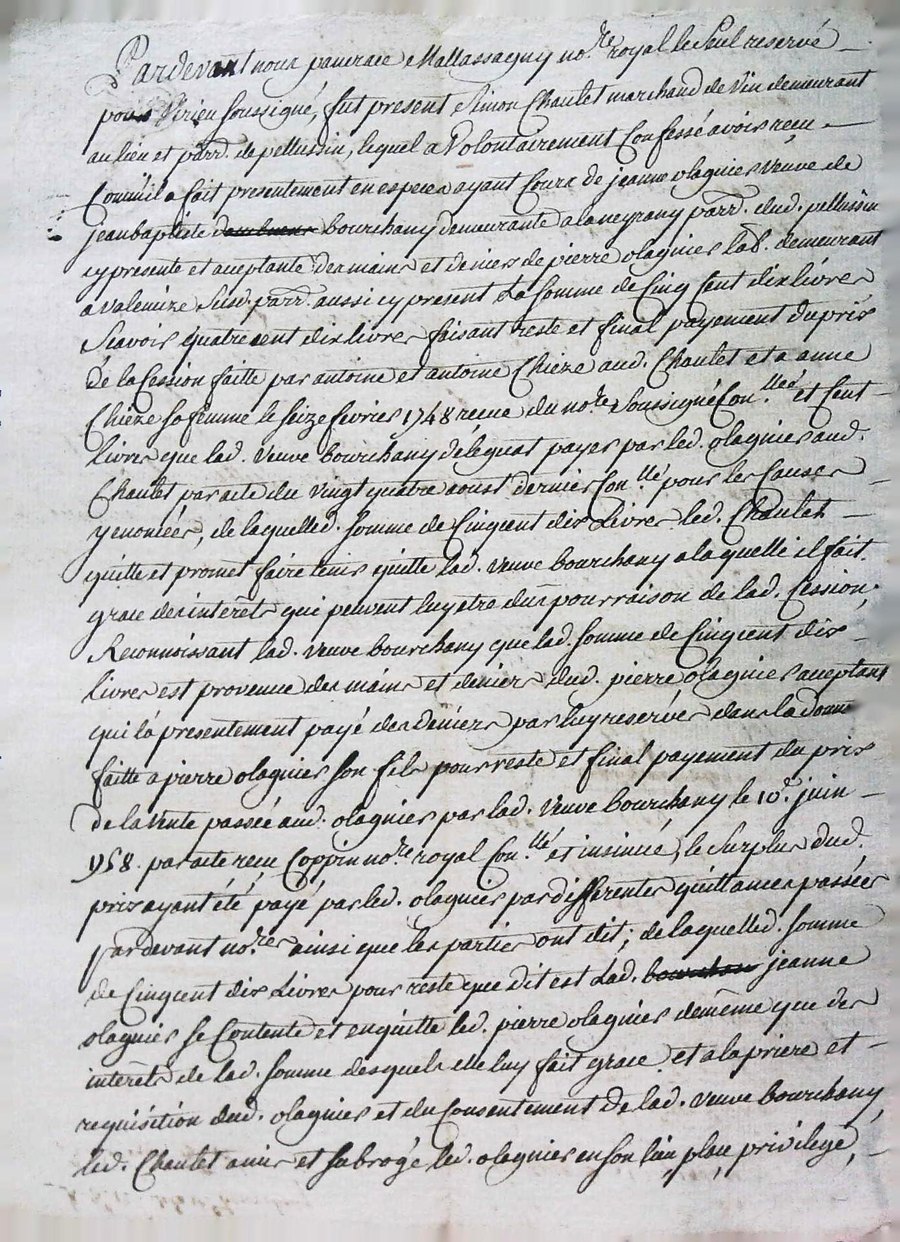 Pardevant nous pancrace Mallassagny no.re royal le Seul reservé
pour Virieu soussigné, fut present Simon Chaulet marchand de Vin demeurant
au lieu et parr. de pellussin, lequel a Volontairement Confessé avoir reçu
Comm'il a fait presentement en especes ayant Cours de jeanne olagnier veuve de
jean baptiste bourchany demeurante a laneyrany parr. dud. pellussin
cy presente et aceptante des mains et deniers de pierre olagnier lab.r demeurant
a valemize susd. parr. aussi cy present La somme de Cinq Cent dix livres
Scavoir quatre cent dix livres faisant reste et final payement du prix
de la Cession faitte par antoine et antoine Chieze aud. Chaulet et a anne
Chieze sa femme le seize fevrier 1748 recue du no.re Soussigné Con.llée et Cent
livres que lad. veuve bourchany délégua payer par led. olagnier aud.
Chaulet par acte du vingt quatre aoust dernier Con.llé pour les Causes
y enoncées, de laquelle d. somme de Cinq cent dix Livres led. Chaulet
quitte et promet faire tenir quitte lad. veuve bourchany a laquelle il fait
grace des interets qui peuvent luy etre dus pour raison de lad. Cession,
Reconnoissant lad. veuve bourchany que lad. somme de Cinq cent dix
livres est provenue des mains et deniers dud. pierre olagnier aceptant
qui l'a presentement payé des deniers par luy reservés dans la donn
faitte a pierre olagnier son fils pour reste et final payement du prix
de la vente passée aud. olagnier par lad. veuve bourchany le 10.e juin
1758 par acte recu Coppin no.re royal Con.llé et insinué, le surplus dud.
prix ayant été payé par led. olagnier par differentes quittances passées
pardevant no.res ainsi que les parties ont dit; de laquelle d. somme
de Cinq cent dix Livres pour reste que dit est Lad. jeanne
olagnier se Contente et en quitte led. pierre olagnier de même que des
interets de lad. somme desquels elle luy fait grace et a la priere et
requisition dud. olagnier et du Consentement de lad. veuve bourchany
led. Chaulet a mis et subrogé led. olagnier en son lieu, place, privilege,